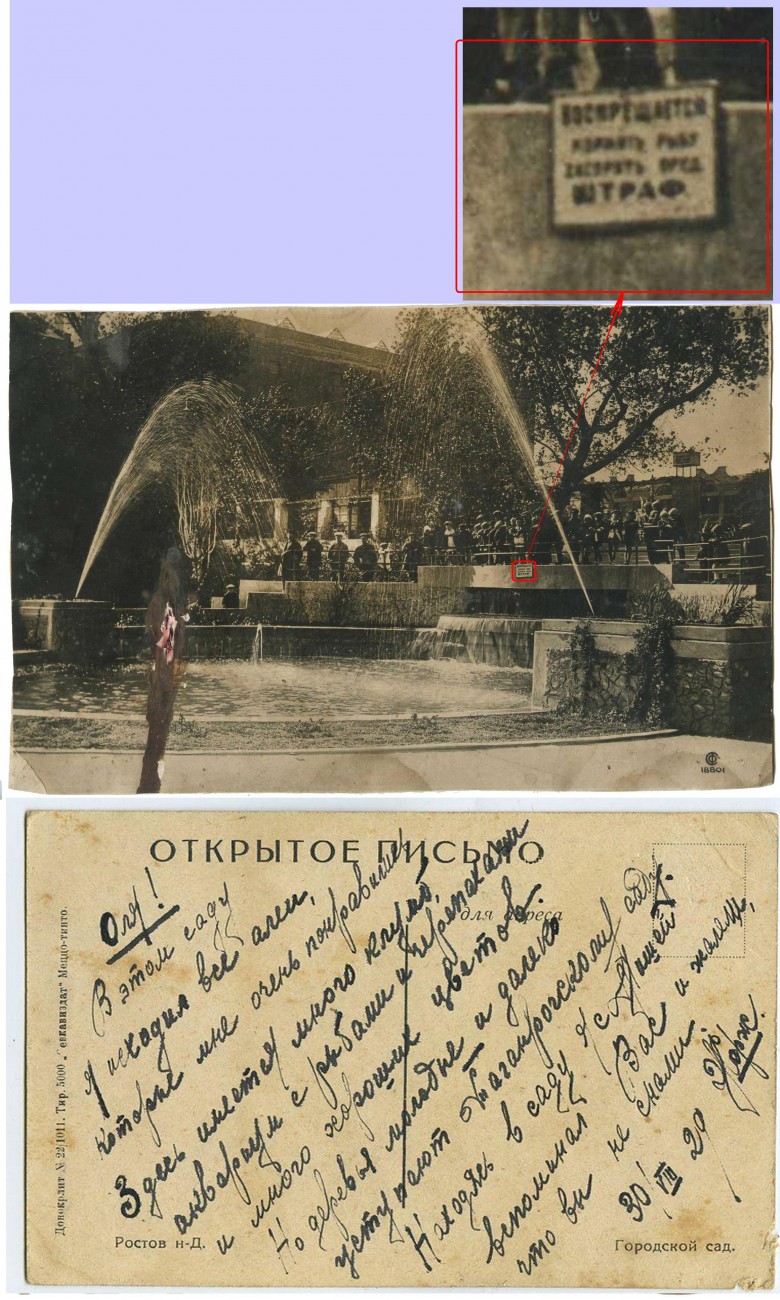 ВОСПРЕЩАЕТСЯ
КОРМИТЬ РЫБУ
ЗАСОРЯТЬ ПРУД
ШТРАФ
18801
ОТКРЫТОЕ ПИСЬМО
для адреса
Оля!
В этом саду
я исходил все алеи,
которые мне очень понравились
Здесь имеется много клумб,
аквариум с рыбами и черепахами
и много хороших цветов.
Но деревья молодые и далеко
уступают Таганрогскому саду.
Находясь в саду я с
вспоминал Вас и жалею,
что вы не с нами
30/VIII 29
Донокрлит № 22/1011. Тир. 5000 „Севкавиздат" Меццо-тинто.
Ростов н-Д.
Городской сад.